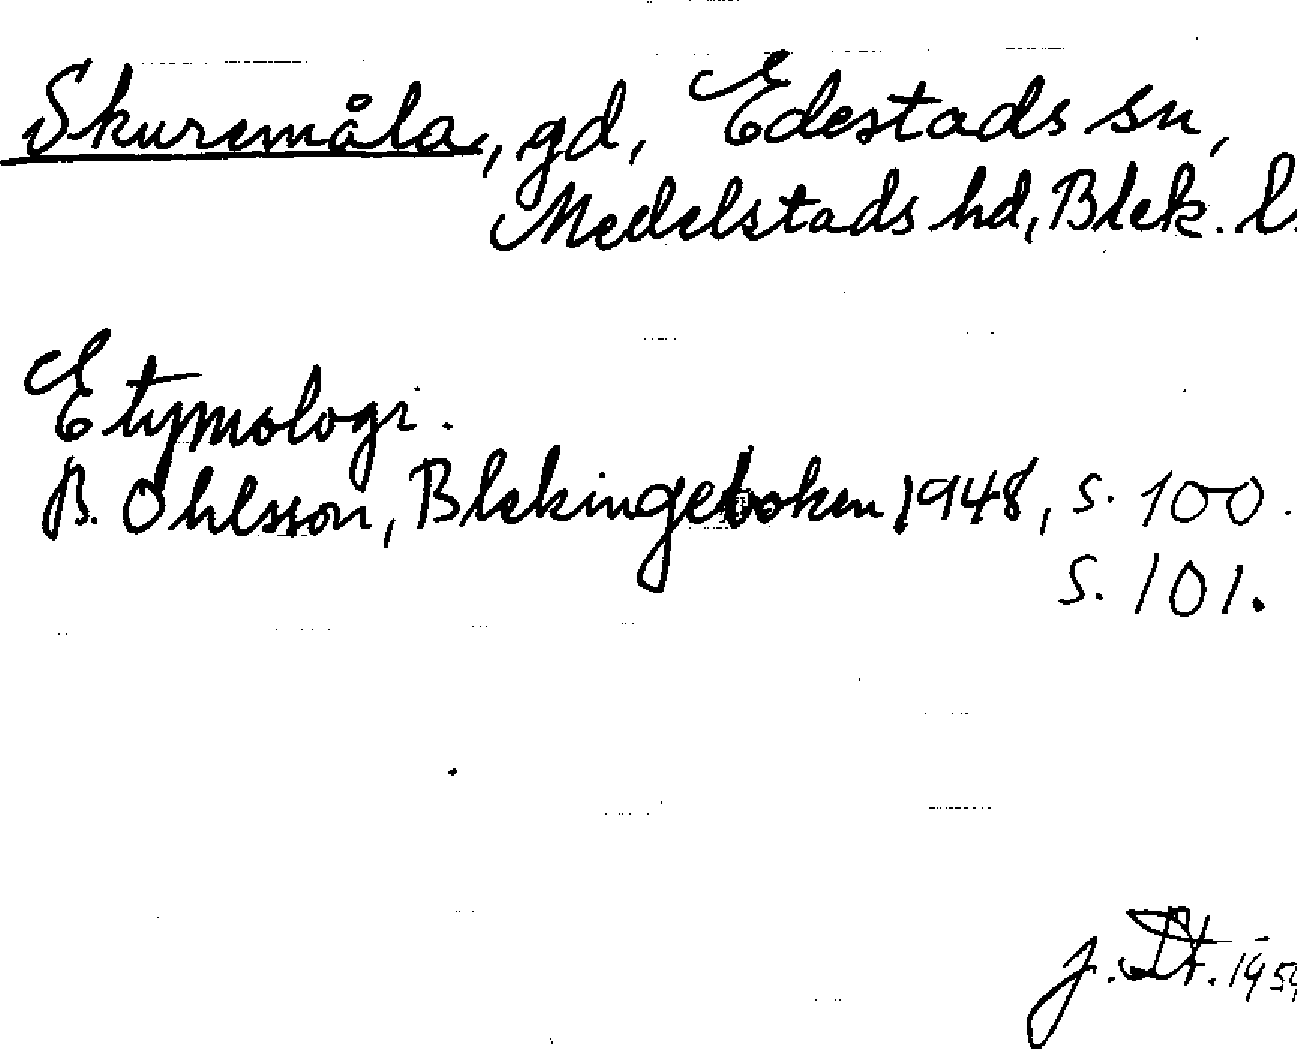 Skuremåla, gd, Edestads sn,
Medelstads hd, Blek. l.
Etymologi.
B. Ohlsson, Blekingeboken 1948, s. 100.
s. 101.
J. 1959